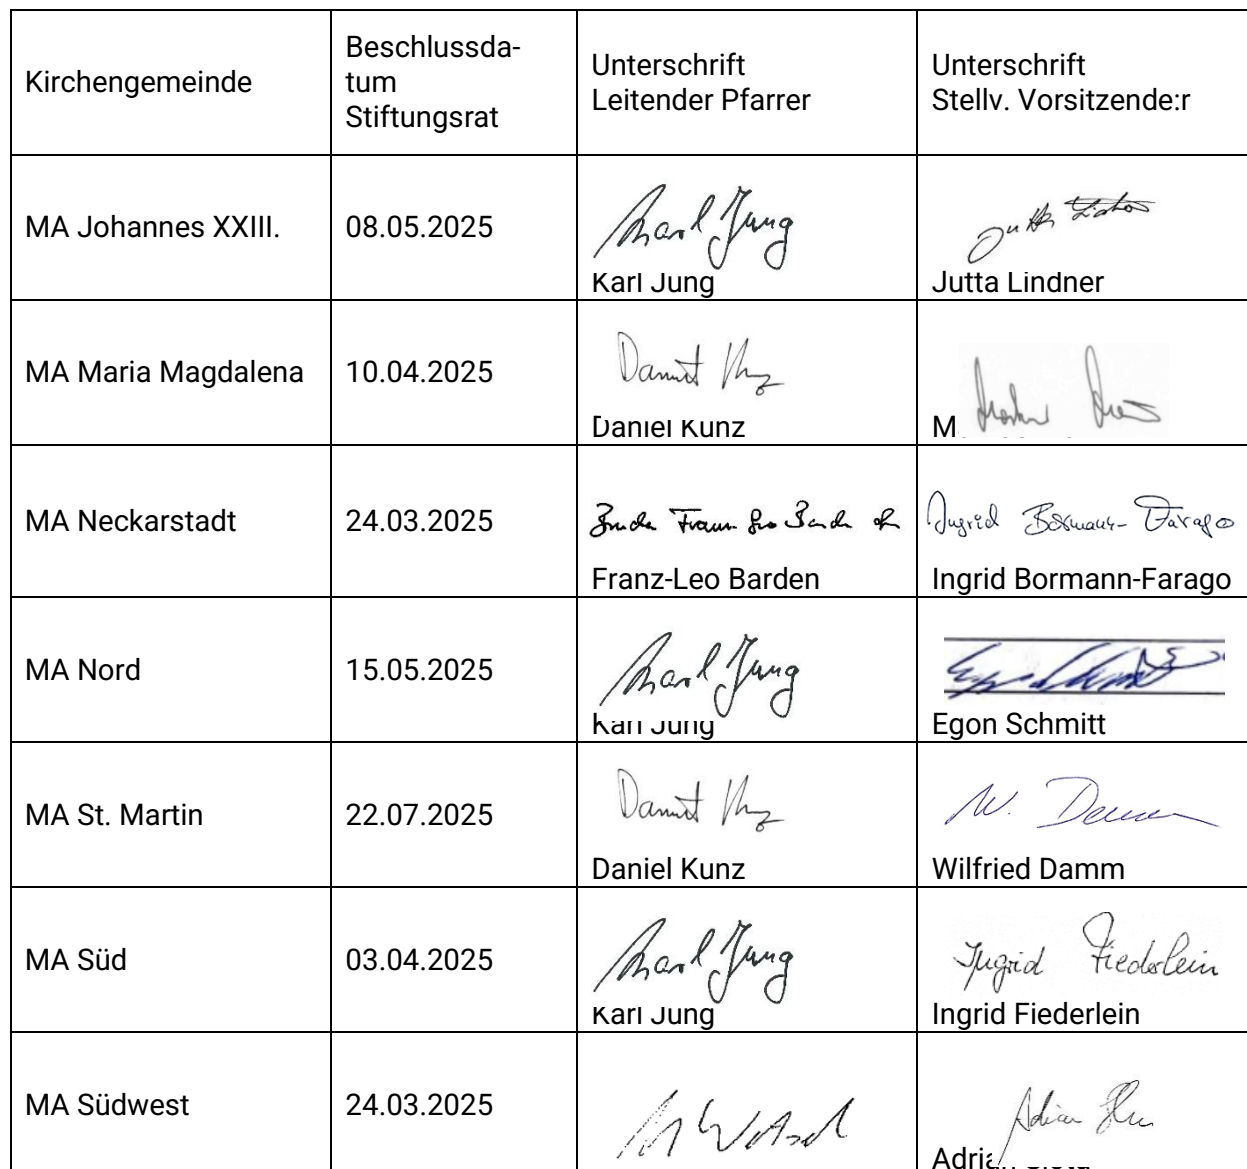 Kirchengemeinde
Beschlussda-
tum
Stiftungsrat
Unterschrift
Leitender Pfarrer
Unterschrift
Stellv. Vorsitzende:r
MA Johannes XXIII.
08.05.2025
Karl Jung
Karl Jung
Jutta
Jutta Lindner
MA Maria Magdalena
10.04.2025
Daniel Kunz
M
MA Neckarstadt
24.03.2025
Franz-Leo Barden
Ingrid Bormann-Farago
Ingrid Bormann-Farago
MA Nord
15.05.2025
Karl Jung
Karl Jung
Egon Schmitt
MA St. Martin
22.07.2025
Daniel Kunz
W. Damm
Wilfried Damm
MA Süd
03.04.2025
Karl Jung
Karl Jung
Ingrid Fiederlein
Ingrid Fiederlein
MA Südwest
24.03.2025
Adrian